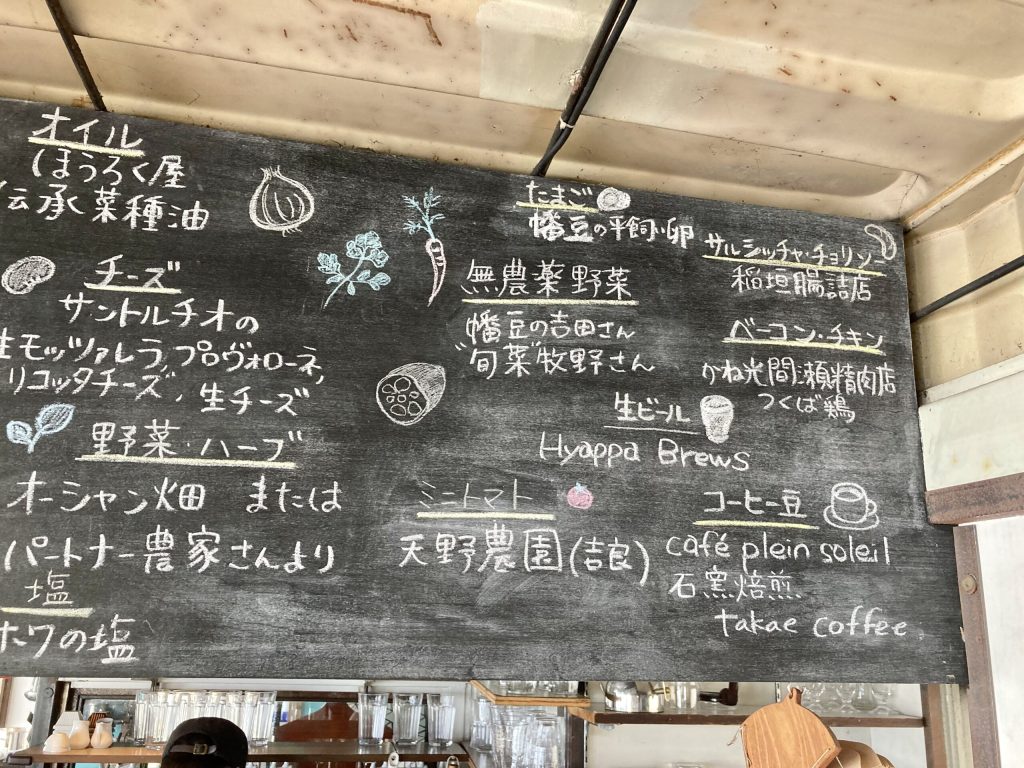 オイル
ほうろく屋
伝承菜種油
チーズ
サントルチオの
生モッツァレラ,プロヴォローネ,
リコッタチーズ,生チーズ
野菜・ハーブ
オーシャン畑 または
パートナー農家さんより
塩
ホワの塩
たまご
幡豆の平飼い卵
無農薬野菜
幡豆の吉田さん
"旬菜"牧野さん
生ビール
Hyappa Brews
ミニトマト
天野農園(吉良)
サルシッチャ・チョリソー
稲垣腸詰店
ベーコン・チキン
かね光間瀬精肉店
つくば鶏
コーヒー豆
café plein soleil
石窯焙煎
takae coffee